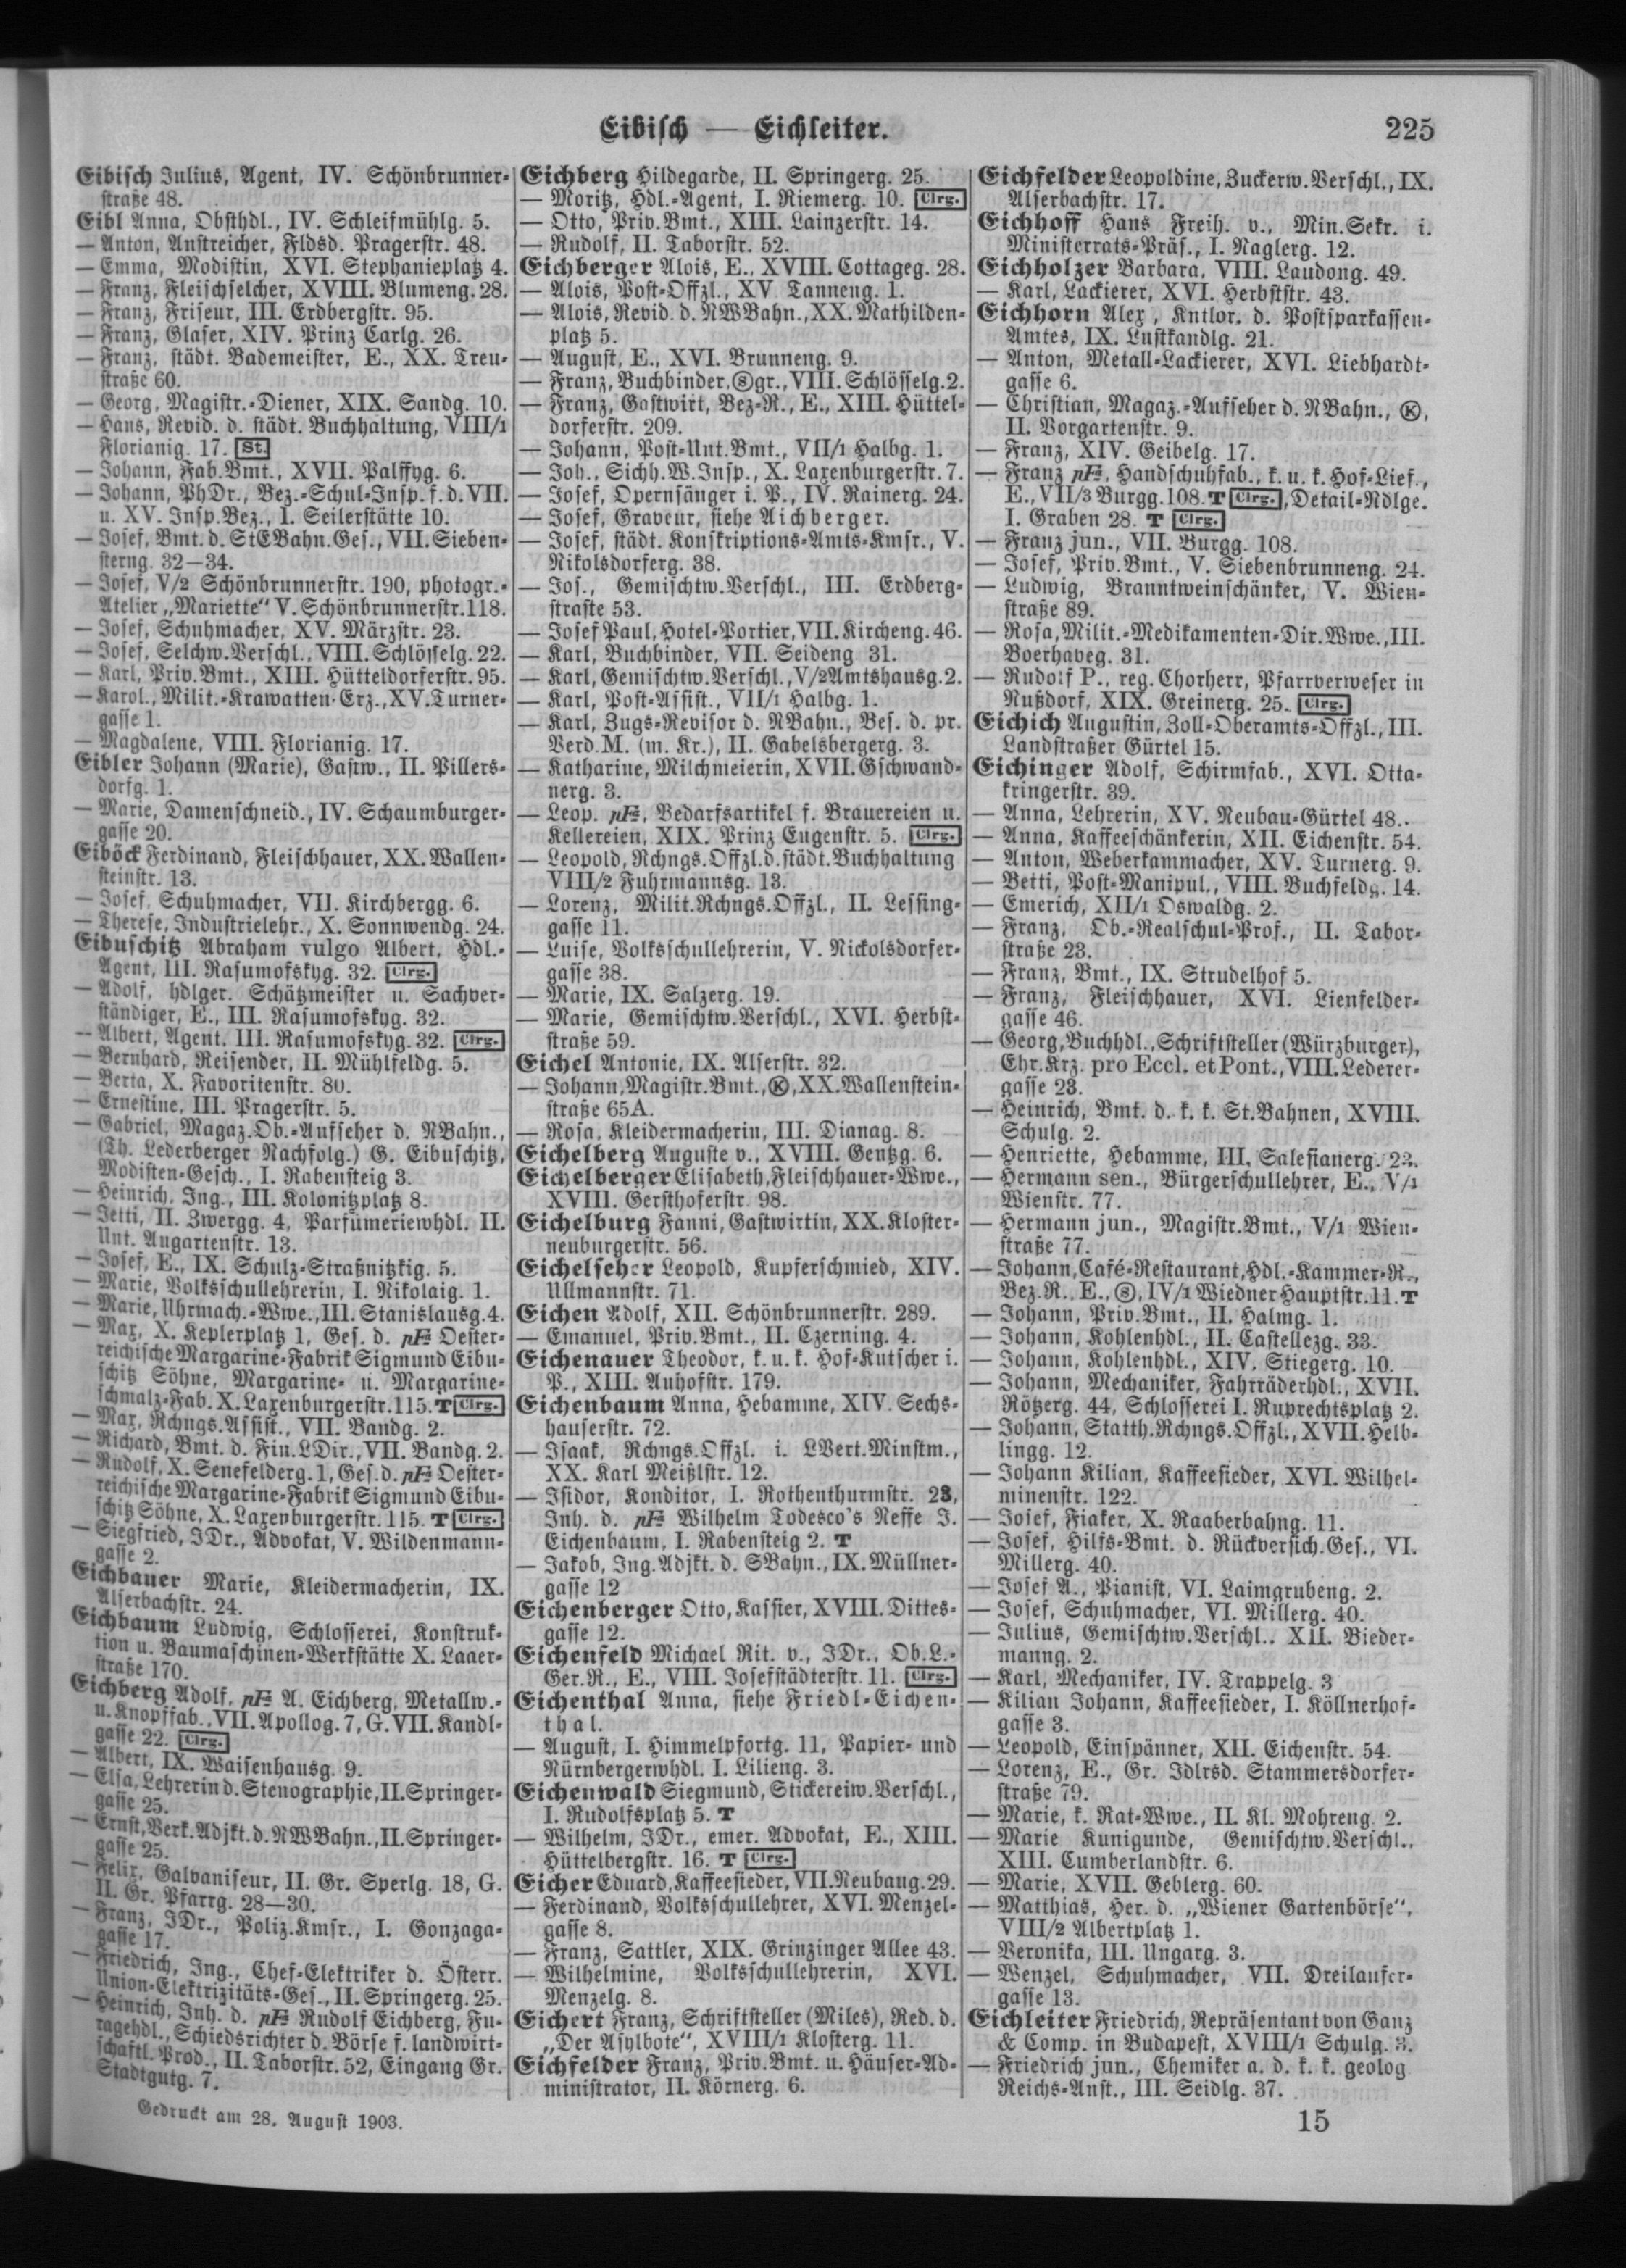 Eibisch — Eichleiter.
225
Eibisch Julius, Agent, IV. Schönbrunner-
straße 48.
Eibl Anna, Obsthdl., IV. Schleifmühlg. 5.
— Anton, Anstreicher, Fldsd. Pragerstr. 48.
— Emma, Modistin, XVI. Stephanieplatz 4.
— Franz, Fleischselcher, XVIII. Blumeng. 28.
— Franz, Friseur, III. Erdbergstr. 95.
— Franz, Glaser, XIV. Prinz Carlg. 26.
— Franz, städt. Bademeister, E., XX. Treu-
straße 60.
— Georg, Magistr.-Diener, XIX. Sandg. 10.
— Hans, Revid. d. städt. Buchhaltung, VIII/1
Florianig. 17. St.
— Johann, Fab.Bmt., XVII. Palffyg. 6.
— Johann, PhDr., Bez.-Schul-Insp. f. d. VII.
u. XV. Insp.Bez., I. Seilerstätte 10.
— Josef, Bmt. d. StEBahn.Ges., VII. Sieben-
sterng. 32—34.
— Josef, V/2 Schönbrunnerstr. 190, photogr.-
Atelier „Mariette“ V. Schönbrunnerstr. 118.
— Josef, Schuhmacher, XV. Märzstr. 23.
— Josef, Selchw.Verschl., VIII. Schlösselg. 22.
— Karl, Priv.Bmt., XIII. Hütteldorferstr. 95.
— Karol., Milit.-Krawatten-Erz., XV. Turner-
gasse 1.
— Magdalene, VIII. Florianig. 17.
Eibler Johann (Marie), Gastw., II. Pillers-
dorfg. 1.
— Marie, Damenschneid., IV. Schaumburger-
gasse 20.
Eiböck Ferdinand, Fleischhauer, XX. Wallen-
steinstr. 13.
— Josef, Schuhmacher, VII. Kirchbergg. 6.
— Therese, Industrielehr., X. Sonnwendg. 24.
Eibuschitz Abraham vulgo Albert, Hdl.-
Agent, III. Rasumofskyg. 32. Clrg.
— Adolf, hdlger. Schätzmeister u. Sachver-
ständiger, E., III. Rasumofskyg. 32.
— Albert, Agent, III. Rasumofskyg. 32. Clrg.
— Bernhard, Reisender, II. Mühlfeldg. 5.
— Berta, X. Favoritenstr. 80.
— Ernestine, III. Pragerstr. 5.
— Gabriel, Magaz.Ob.-Aufseher d. NBahn.,
(Th. Lederberger Nachfolg.) G. Eibuschitz,
Modisten-Gesch., I. Rabensteig 3.
— Heinrich, Ing., III. Kolonitzplatz 8.
— Jetti, II. Zwergg. 4, Parfümeriewhdl. II.
Unt. Augartenstr. 13.
— Josef, E., IX. Schulz-Straßnitzkig. 5.
— Marie, Volksschullehrerin, I. Nikolaig. 1.
— Marie, Uhrmach.-Wwe., III. Stanislausg. 4.
— Max, X. Keplerplatz 1, Ges. d. pF= Oester-
reichische Margarine-Fabrik Sigmund Eibu-
schitz Söhne, Margarine- u. Margarine-
schmalz-Fab. X. Laxenburgerstr. 115. T Clrg.
— Max, Rchngs.Assist., VII. Bandg. 2.
— Richard, Bmt. d. Fin.LDir., VII. Bandg. 2.
— Rudolf, X. Senefelderg. 1, Ges. d. pF= Oester-
reichische Margarine-Fabrik Sigmund Eibu-
schitz Söhne, X. Laxenburgerstr. 115. T Clrg.
— Siegfried, JDr., Advokat, V. Wildenmann-
gasse 2.
Eichbauer Marie, Kleidermacherin, IX.
Alserbachstr. 24.
Eichbaum Ludwig, Schlosserei, Konstruk-
tion u. Baumaschinen-Werkstätte X. Laaer-
straße 170.
Eichberg Adolf, pF= A. Eichberg, Metallw.-
u. Knopffab., VII. Apollog. 7, G. VII. Kandl-
gasse 22. Clrg.
— Albert, IX. Waisenhausg. 9.
— Elsa, Lehrerin d. Stenographie, II. Springer-
gasse 25.
— Ernst, Verk.Adjkt. d. NWBahn., II. Springer-
gasse 25.
— Felix, Galvaniseur, II. Gr. Sperlg. 18, G.
II. Gr. Pfarrg. 28—30.
— Franz, JDr., Poliz.Kmsr., I. Gonzaga-
gasse 17.
— Friedrich, Ing., Chef-Elektriker d. Österr.
Union-Elektrizitäts-Ges., II. Springerg. 25.
— Heinrich, Inh. d. pF= Rudolf Eichberg, Fu-
ragehdl., Schiedsrichter d. Börse f. landwirt-
schaftl. Prod., II. Taborstr. 52, Eingang Gr.
Stadtgutg. 7.
Eichberg Hildegarde, II. Springerg. 25.
— Moritz, Hdl.-Agent, I. Riemerg. 10. Clrg.
— Otto, Priv.Bmt., XIII. Lainzerstr. 14.
— Rudolf, II. Taborstr. 52.
Eichberger Alois, E., XVIII. Cottageg. 28.
— Alois, Post-Offzl., XV Tanneng. 1.
— Alois, Revid. d. NWBahn., XX. Mathilden-
platz 5.
— August, E., XVI. Brunneng. 9.
— Franz, Buchbinder, Ⓢgr., VIII. Schlösselg. 2.
— Franz, Gastwirt, Bez-R., E., XIII. Hüttel-
dorferstr. 209.
— Johann, Post-Unt.Bmt., VII/1 Halbg. 1.
— Joh., Sichh.W.Insp., X. Laxenburgerstr. 7.
— Josef, Opernsänger i. P., IV. Rainerg. 24.
— Josef, Graveur, siehe Aichberger.
— Josef, städt. Konskriptions-Amts-Kmsr., V.
Nikolsdorferg. 38.
— Jos., Gemischtw.Verschl., III. Erdberg-
straste 53.
— Josef Paul, Hotel-Portier, VII. Kircheng. 46.
— Karl, Buchbinder, VII. Seideng 31.
— Karl, Gemischtw.Verschl., V/2 Amtshausg. 2.
— Karl, Post-Assist., VII/1 Halbg. 1.
— Karl, Zugs-Revisor d. NBahn., Bes. d. pr.
Verd.M. (m. Kr.), II. Gabelsbergerg. 3.
— Katharine, Milchmeierin, XVII. Gschwand-
nerg. 3.
— Leop. pF=, Bedarfsartikel f. Brauereien u.
Kellereien, XIX. Prinz Eugenstr. 5. Clrg.
— Leopold, Rchngs.Offzl. d. städt. Buchhaltung
VIII/2 Fuhrmannsg. 13.
— Lorenz, Milit.Rchngs.Offzl., II. Lessing-
gasse 11.
— Luise, Volksschullehrerin, V. Nickolsdorfer-
gasse 38.
— Marie, IX. Salzerg. 19.
— Marie, Gemischtw.Verschl., XVI. Herbst-
straße 59.
Eichel Antonie, IX. Alserstr. 32.
— Johann, Magistr.Bmt., Ⓚ, XX. Wallenstein-
straße 65A.
— Rosa, Kleidermacherin, III. Dianag. 8.
Eichelberg Auguste v., XVIII. Gentzg. 6.
Eichelberger Elisabeth, Fleischhauer-Wwe.,
XVIII. Gersthoferstr. 98.
Eichelburg Fanni, Gastwirtin, XX. Kloster-
neuburgerstr. 56.
Eichelseher Leopold, Kupferschmied, XIV.
Ullmannstr. 71.
Eichen Adolf, XII. Schönbrunnerstr. 289.
— Emanuel, Priv.Bmt., II. Czerning. 4.
Eichenauer Theodor, k. u. k. Hof-Kutscher i.
P., XIII. Auhofstr. 179.
Eichenbaum Anna, Hebamme, XIV. Sechs-
hauserstr. 72.
— Isaak, Rchngs.Offzl. i. LVert.Minstm.,
XX. Karl Meißlstr. 12.
— Isidor, Konditor, I. Rothenthurmstr. 23,
Inh. d. pF= Wilhelm Todesco's Neffe J.
Eichenbaum, I. Rabensteig 2. T
— Jakob, Ing.Adjkt. d. SBahn., IX. Müllner-
gasse 12
Eichenberger Otto, Kassier, XVIII. Dittes-
gasse 12.
Eichenfeld Michael Rit. v., JDr., Ob.L.-
Ger.R., E., VIII. Josefstädterstr. 11. Clrg.
Eichenthal Anna, siehe Friedl-Eichen-
thal.
— August, I. Himmelpfortg. 11, Papier- und
Nürnbergerwhdl. I. Lilieng. 3.
Eichenwald Siegmund, Stickereiw.Verschl.,
I. Rudolfsplatz 5. T
— Wilhelm, JDr., emer. Advokat, E., XIII.
Hüttelbergstr. 16. T Clrg.
Eicher Eduard, Kaffeesieder, VII. Neubaug. 29.
— Ferdinand, Volksschullehrer, XVI. Menzel-
gasse 8.
— Franz, Sattler, XIX. Grinzinger Allee 43.
— Wilhelmine, Volksschullehrerin, XVI.
Menzelg. 8.
Eichert Franz, Schriftsteller (Miles), Red. d.
„Der Asylbote“, XVIII/1 Klosterg. 11.
Eichfelder Franz, Priv.Bmt. u. Häuser-Ad-
ministrator, II. Körnerg. 6.
Eichfelder Leopoldine, Zuckerw.Verschl., IX.
Alserbachstr. 17.
Eichhoff Hans Freih. v., Min.Sekr. i.
Ministerrats-Präs., I. Naglerg. 12.
Eichholzer Barbara, VIII. Laudong. 49.
— Karl, Lackierer, XVI. Herbststr. 43.
Eichhorn Alex, Kntlor. d. Postsparkassen-
Amtes, IX. Lustkandlg. 21.
— Anton, Metall-Lackierer, XVI. Liebhardt-
gasse 6.
— Christian, Magaz.-Aufseher d. NBahn., Ⓚ,
II. Vorgartenstr. 9.
— Franz, XIV. Geibelg. 17.
— Franz pF=, Handschuhfab., k. u. k. Hof-Lief.,
E., VII/3 Burgg. 108. T Clrg., Detail-Ndlge.
I. Graben 28. T Clrg.
— Franz jun., VII. Burgg. 108.
— Josef, Priv.Bmt., V. Siebenbrunneng. 24.
— Ludwig, Branntweinschänker, V. Wien-
straße 89.
— Rosa, Milit.-Medikamenten-Dir.Wwe., III.
Boerhaveg. 31.
— Rudolf P., reg. Chorherr, Pfarrverweser in
Nußdorf, XIX. Greinerg. 25. Clrg.
Eichich Augustin, Zoll-Oberamts-Offzl., III.
Landstraßer Gürtel 15.
Eichinger Adolf, Schirmfab., XVI. Otta-
kringerstr. 39.
— Anna, Lehrerin, XV. Neubau-Gürtel 48..
— Anna, Kaffeeschänkerin, XII. Eichenstr. 54.
— Anton, Weberkammacher, XV. Turnerg. 9.
— Betti, Post-Manipul., VIII. Buchfeldg. 14.
— Emerich, XII/1 Oswaldg. 2.
— Franz, Ob.-Realschul-Prof., II. Tabor-
straße 23.
— Franz, Bmt., IX. Strudelhof 5.
— Franz, Fleischhauer, XVI. Lienfelder-
gasse 46.
— Georg, Buchhdl., Schriftsteller (Würzburger),
Ehr.Krz. pro Eccl. et Pont., VIII. Lederer-
gasse 23.
— Heinrich, Bmt. d. k. k. St.Bahnen, XVIII.
Schulg. 2.
— Henriette, Hebamme, III. Salesianerg. 23.
— Hermann sen., Bürgerschullehrer, E., V/1
Wienstr. 77.
— Hermann jun., Magistr.Bmt., V/1 Wien-
straße 77.
— Johann, Café-Restaurant, Hdl.-Kammer-R.,
Bez.R., E., Ⓢ, IV/1 Wiedner Hauptstr. 11. T
— Johann, Priv.Bmt., II. Halmg. 1.
— Johann, Kohlenhdl., II. Castellezg. 33.
— Johann, Kohlenhdl., XIV. Stiegerg. 10.
— Johann, Mechaniker, Fahrräderhdl., XVII.
Rötzerg. 44, Schlosserei I. Ruprechtsplatz 2.
— Johann, Statth.Rchngs.Offzl., XVII. Helb-
lingg. 12.
— Johann Kilian, Kaffeesieder, XVI. Wilhel-
minenstr. 122.
— Josef, Fiaker, X. Raaberbahng. 11.
— Josef, Hilfs-Bmt. d. Rückversich.Ges., VI.
Millerg. 40.
— Josef A., Pianist, VI. Laimgrubeng. 2.
— Josef, Schuhmacher, VI. Millerg. 40.
— Julius, Gemischtw.Verschl.. XII. Bieder-
manng. 2.
— Karl, Mechaniker, IV. Trappelg. 3
— Kilian Johann, Kaffeesieder, I. Köllnerhof-
gasse 3.
— Leopold, Einspänner, XII. Eichenstr. 54.
— Lorenz, E., Gr. Jdlrsd. Stammersdorfer-
straße 79.
— Marie, k. Rat-Wwe., II. Kl. Mohreng. 2.
— Marie Kunigunde, Gemischtw.Verschl.,
XIII. Cumberlandstr. 6.
— Marie, XVII. Geblerg. 60.
— Matthias, Her. d. „Wiener Gartenbörse“,
VIII/2 Albertplatz 1.
— Veronika, III. Ungarg. 3.
— Wenzel, Schuhmacher, VII. Dreilaufer-
gasse 13.
Eichleiter Friedrich, Repräsentant von Ganz
& Comp. in Budapest, XVIII/1 Schulg. 3.
— Friedrich jun., Chemiker a. d. k. k. geolog
Reichs-Anst., III. Seidlg. 37.
Gedruckt am 28. August 1903.
15